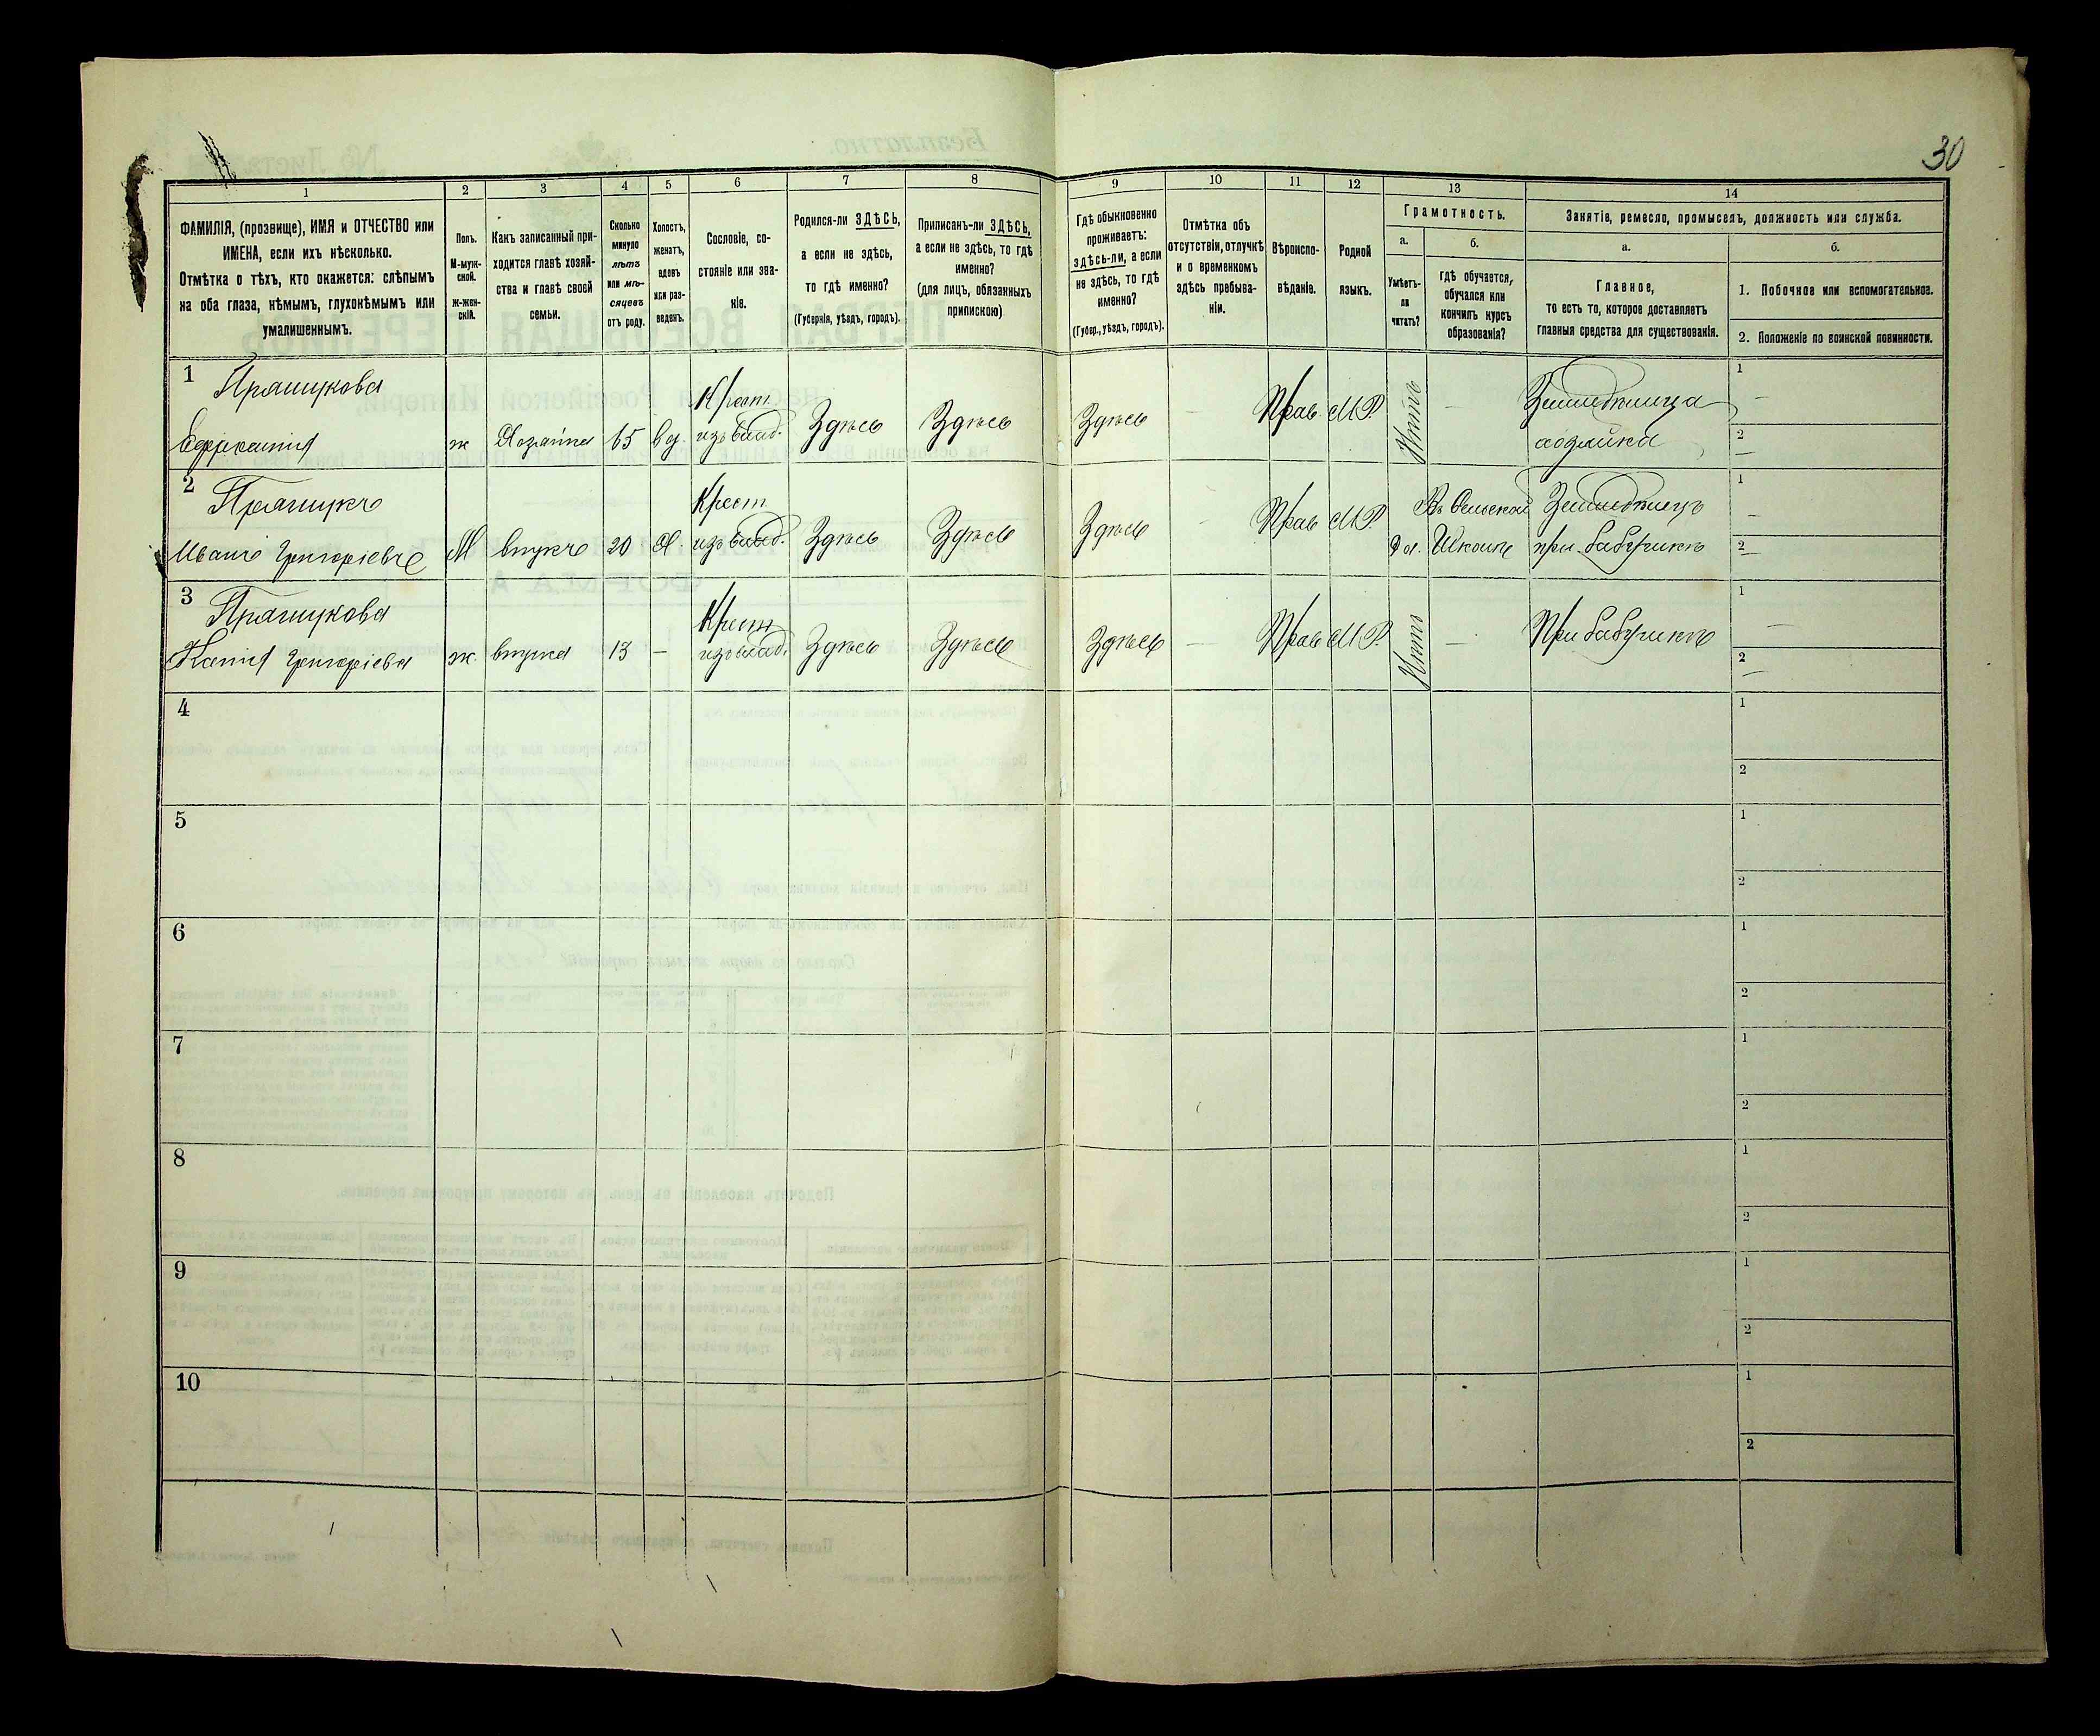 30
1 2 3 4 5 6 7 8 9 10 11 12 13 14
ФАМИЛІЯ, (прозвище), ИМЯ и ОТЧЕСТВО или
ИМЕНА, если ихъ нѣсколько.
Отмѣтка о тѣхъ, кто окажется: слѣпымъ
на оба глаза, нѣмымъ, глухонѣмымъ или
умалишеннымъ.
Полъ.
М-муж-
ской.
ж-жен-
скій.
Какъ записанный при-
ходится главѣ хозяй-
ства и главѣ своей
семьи.
Сколько
минуло
лѣтъ
или мѣ-
сяцевъ
отъ роду.
Холостъ,
женатъ,
вдовъ
или раз-
веденъ.
Сословіе, со-
стояніе или зва-
ніе.
Родился-ли ЗДѢСЬ,
а если не здѣсь,
то гдѣ именно?
(Губернія, уѣздъ, городъ).
Приписанъ-ли ЗДѢСЬ,
а если не здѣсь, то гдѣ
именно?
(для лицъ, обязанныхъ
припискою)
Гдѣ обыкновенно
проживаетъ:
здѣсь-ли, а если
не здѣсь, то гдѣ
именно?
(Губер., уѣздъ, городъ).
Отмѣтка объ
отсутствіи, отлучкѣ
и о временномъ
здѣсь пребыва-
ніи.
Вѣроиспо-
вѣданіе.
Родной
языкъ.
Грамотность.
а.
Умѣетъ-
ли
читать?
б.
гдѣ обучается,
обучался или
кончилъ курсъ
образованія?
Занятіе, ремесло, промыселъ, должность или служба.
а.
Главное,
то есть то, которое доставляетъ
главныя средства для существованія.
б.
1. Побочное или вспомогательное.
2. Положеніе по воинской повинности.
1 Прашукова Крест.
ж Хозяйка 65 вд. изъ влад. Здѣсь Здѣсь Здѣсь — Прав. М.Р. Нѣтъ — Земледѣлица
хозяйка
1 —
2 —
2 Прашукъ Крест.
Иванъ Григорієвъ М внукъ 20 Х. изъ влад. Здѣсь Здѣсь Здѣсь - Прав М.Р. Да. Въ Сельской Земледѣлецъ
Школѣ при бабушкѣ
1 —
2 —
3 Прашукова Крест.
Григоріева ж. внука 13 — изъ влад. Здѣсь Здѣсь Здѣсь — Прав М.Р. Нѣтъ — При бабушкѣ
1 —
2 —
4 1
2
5 1
2
6 1
2
7 1
2
8 1
2
9 1
2
10 1
2